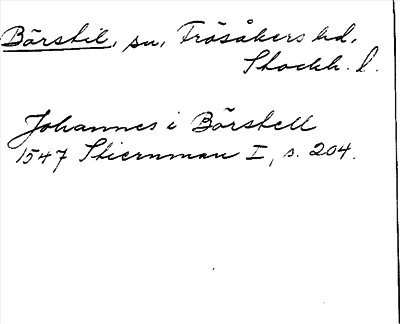 Börstil, sn, Frösåkers hd,
Stockh. l.
Johannes i Börstell
1547 Stiernman I, s. 204.